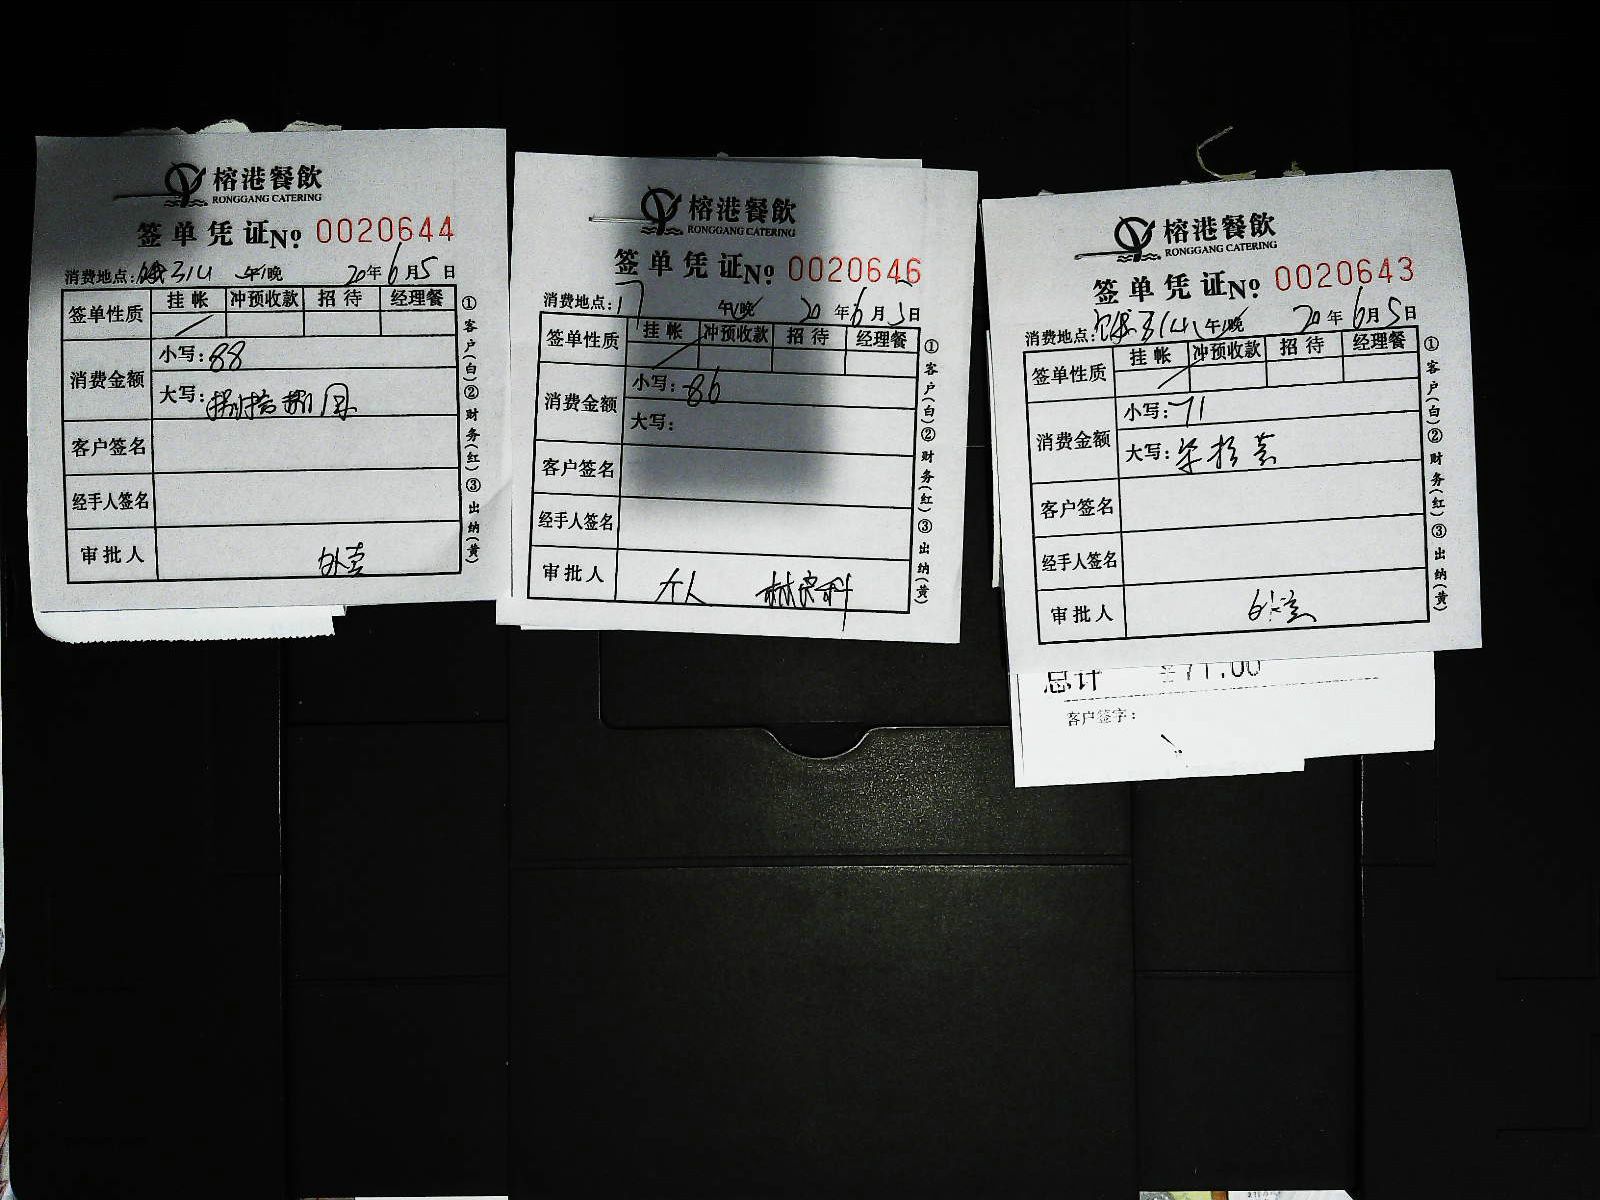 榕港餐飲
RONGGANG CATERING
签单凭证№ 0020644
消费地点: 午/晚 20年6月5日
签单性质 挂帐 冲预收款 招待 经理餐
消费金额 小写:88
大写:捌拾捌
客户签名
经手人签名
审批人 外卖
①客户(白)②财务(红)③出纳(黄)
榕港餐飲
RONGGANG CATERING
签单凭证№ 0020646
消费地点:17 午/晚 20年6月5日
签单性质 挂帐 冲预收款 招待 经理餐
消费金额 小写:86
大写:
客户签名
经手人签名
审批人 个人
①客户(白)②财务(红)③出纳(黄)
榕港餐飲
RONGGANG CATERING
签单凭证№ 0020643
消费地点: 午/晚 20年6月5日
签单性质 挂帐 冲预收款 招待 经理餐
消费金额 小写:71
大写:柒拾壹
客户签名
经手人签名
审批人 外卖
①客户(白)②财务(红)③出纳(黄)
总计 ¥71.00
客户签字: